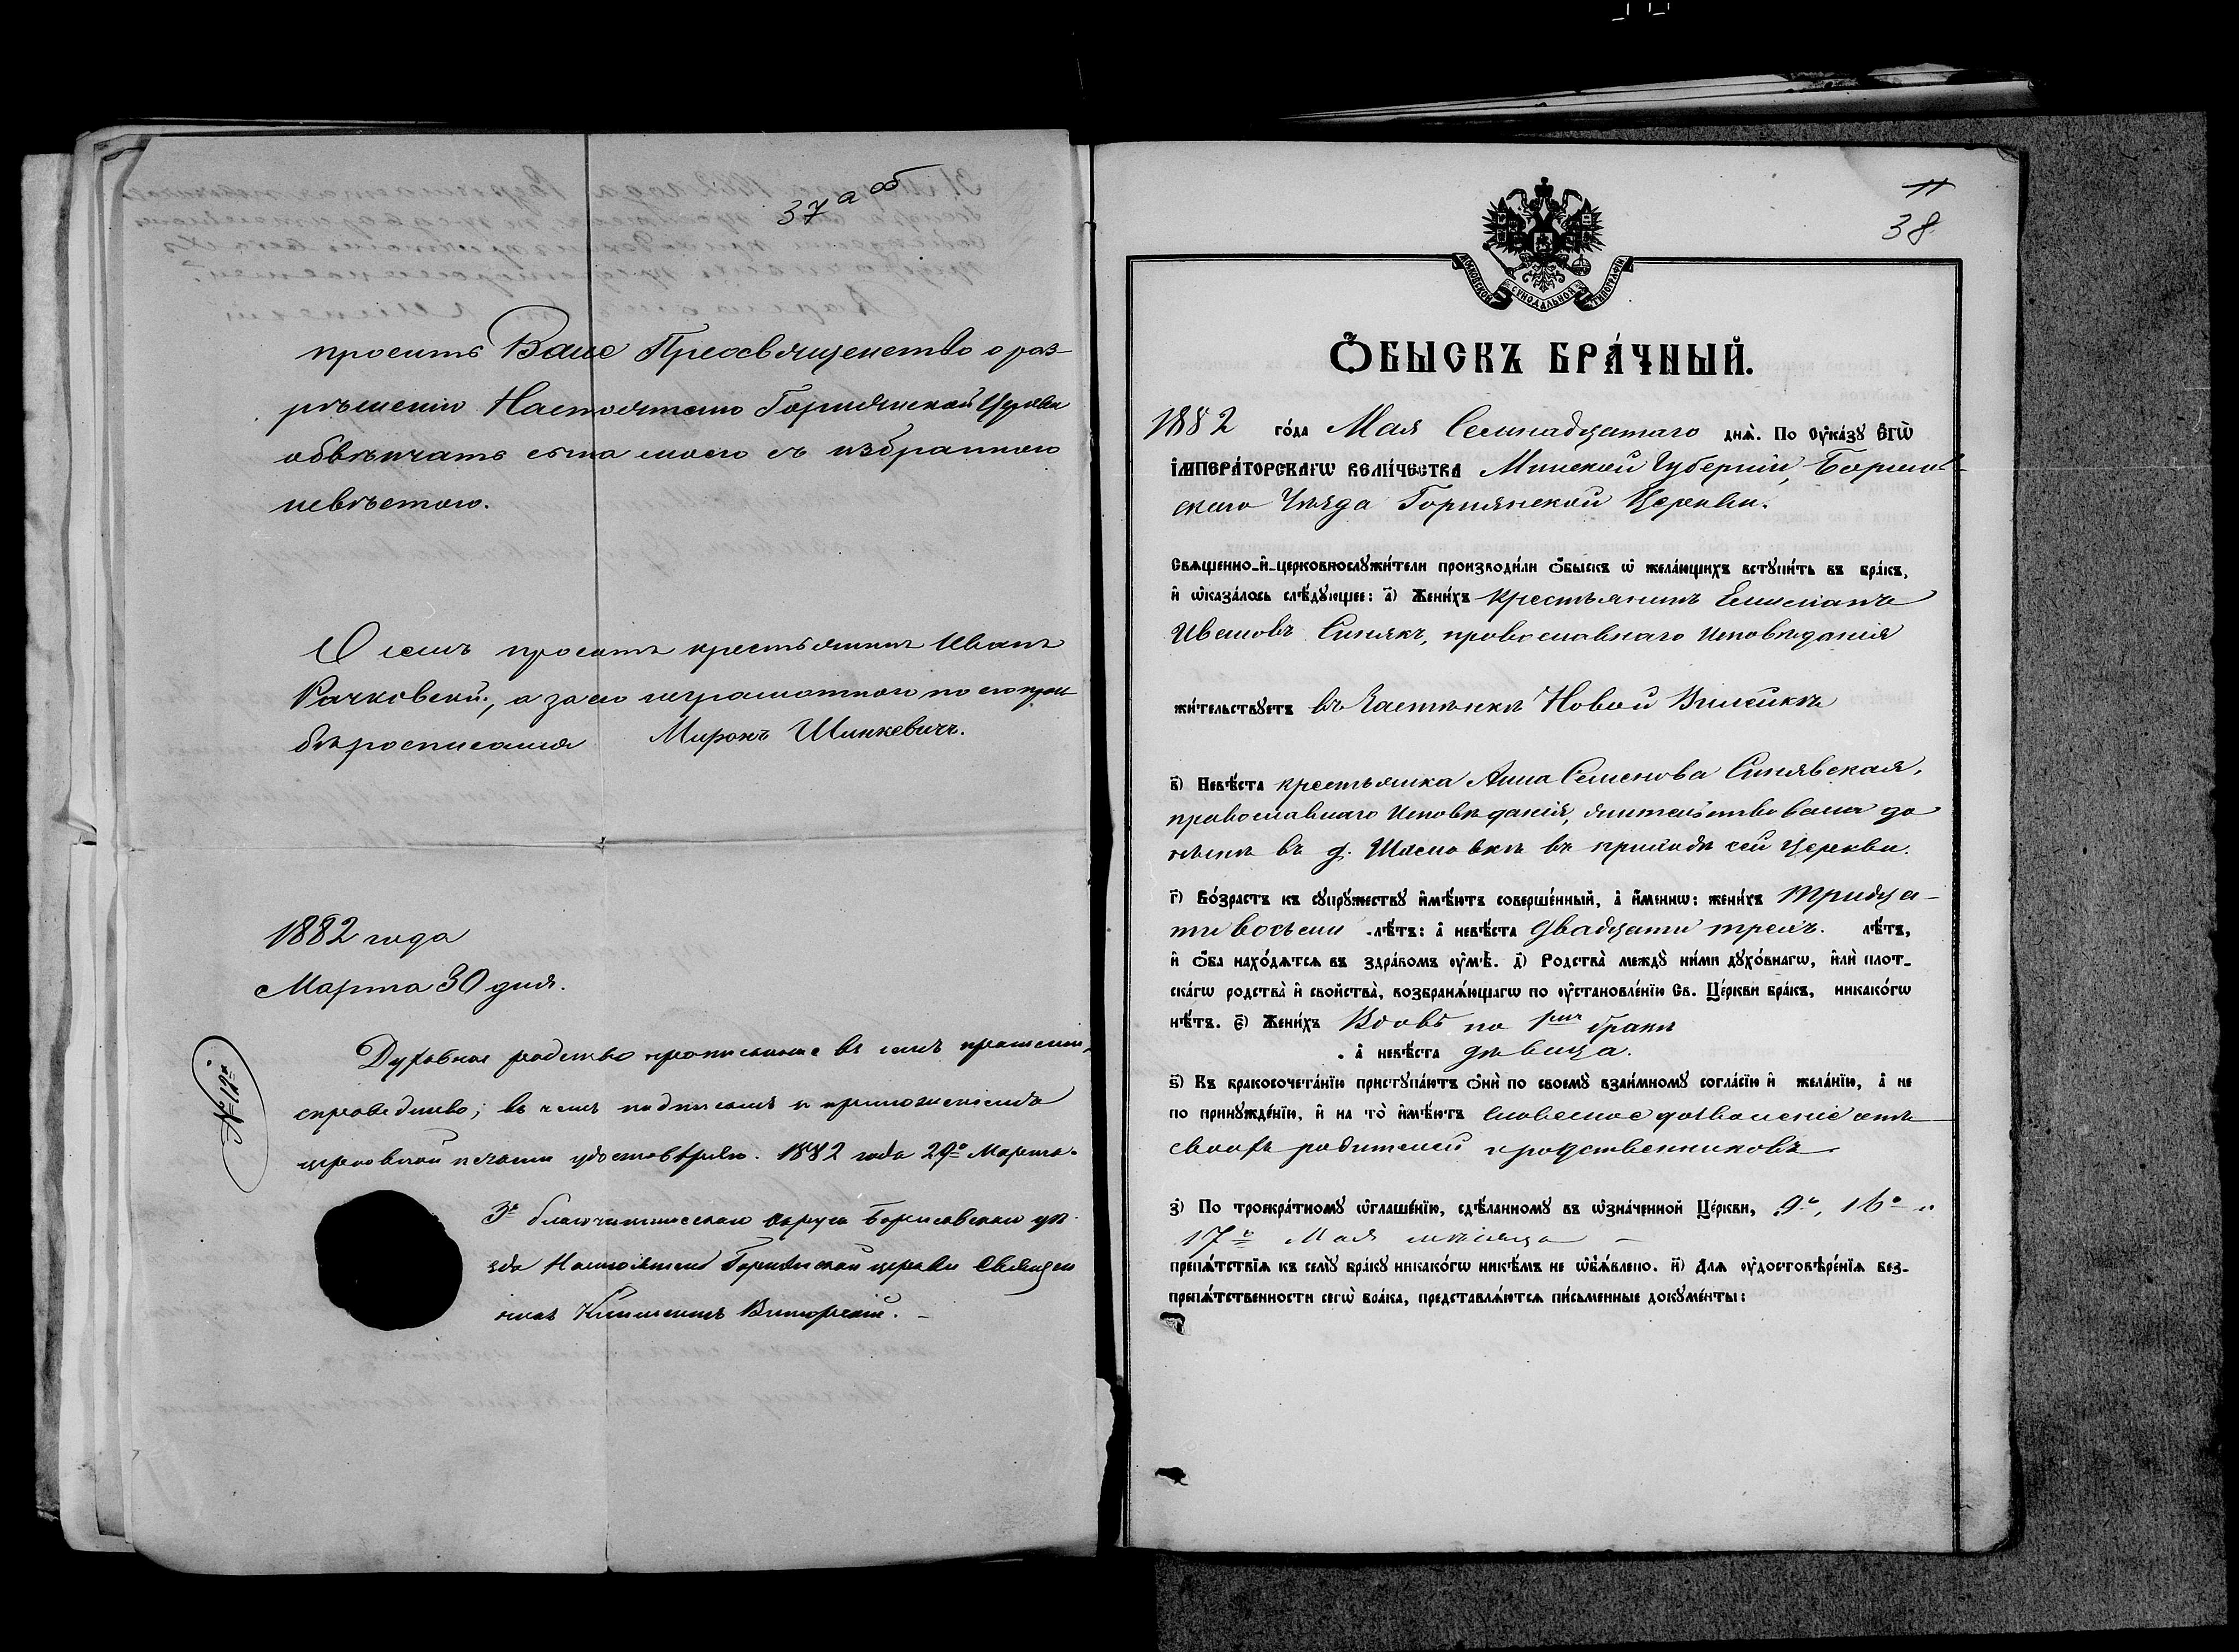 37 а об
просить Ваше Преосвященство о раз-
рѣшеніи Настоятелю Горнянской Церкви
обвѣнчать сына моего съ избранною
невѣстою.
О семъ проситъ крестьянинъ Иванъ
Рачковскій, а за его неграмотного по его прось-
бѣ росписался Миронъ Шинкевичъ.
1882 года
Марта 30 дня.
№ 12й
Духовное родство прописанное въ семъ прошеніи,
справедливо; въ чемъ подписомъ и приложеніемъ
церковной печати удостовѣряю. 1882 года 29го Марта.
3го благочинническаго округа Борисовскаго уѣ-
зда Настоятель Горнянской церкви Священ
никъ
11
38
МОСКОВСКОЙ СѴНОДАЛЬНОЙ ТИПОГРАФІИ
Ѻ҆БЫСКЪ БРА́ЧНЫЙ.
1882 го́да Мая Семнадцатаго днѧ̀. По оу҆ка́зꙋ Є҆ГѠ̀
І҆МПЕРА́ТОРСКАГѠ ВЕЛИ́ЧЕСТВА Минской Губерніи, Борисов-
скаго Уѣзда Горнянской Церкви.
Свѧщенно-и҆-церковнослꙋжи́тели производи́ли ѻ҆́быскъ ѡ҆ жела́ющихъ встꙋпи́ть въ бра́къ,
и҆ ѡ҆каза́лось слѣ́дꙋющее: а҃) Жени́хъ крестьянинъ
Ивановъ Синякъ, православнаго исповѣданія
жи́тельствꙋетъ въ Застѣнкѣ Новой Вилейкѣ
в҃) Невѣ́ста крестьянка Анна Семенова Синявская,
православнаго исповѣданія, жительствовала до
нынѣ въ д. въ приходѣ сей Церкви.
г҃) Во́зрастъ къ сꙋпрꙋ́жествꙋ и҆мѣ́ютъ соверше́нный, а҆ и҆́меннѡ: жени́хъ Тридца-
ти восьми лѣ́тъ: а҆ невѣ́ста двадцати трехъ. лѣ́тъ,
и҆ ѻ҆́ба нахо́дѧтсѧ въ здра́вомъ оу҆мѣ̀. д҃) Родства̀ междꙋ̀ ни́ми дꙋхо́внагѡ, и҆лѝ плот-
ска́гѡ родства̀ и҆ свойства̀, возбранѧ́ющагѡ по оу҆становле́нїю Св. Це́ркви бра́къ, никако́гѡ
нѣ́тъ. є҃) Жени́хъ Вдовъ по 1мъ бракѣ
а҆ невѣ́ста дѣвица.
ѕ҃) Къ бракосочета́нїю пристꙋпа́ютъ ѻ҆нѝ по своемꙋ̀ взаи́мномꙋ согла́сїю и҆ жела́нїю, а҆ не
по принꙋжде́нїю, и҆ на то̀ и҆мѣ́ютъ словесное дозволеніе отъ
своихъ родителей и родственниковъ.
з҃) По троекра́тномꙋ ѡ҆глаше́нїю, сдѣ́ланномꙋ въ ѡ҆зна́ченной Це́ркви, 9го, 16го и
17го Мая мѣсяца
препѧ́тствїѧ къ семꙋ̀ бра́кꙋ никако́гѡ никѣ́мъ не ѡ҆б̾ѧ́влено. и҃) Длѧ оу҆достовѣре́нїѧ без-
препѧ́тственности сегѡ̀ бра́ка, представлѧ́ютсѧ пи́сьменные докꙋме́нты: